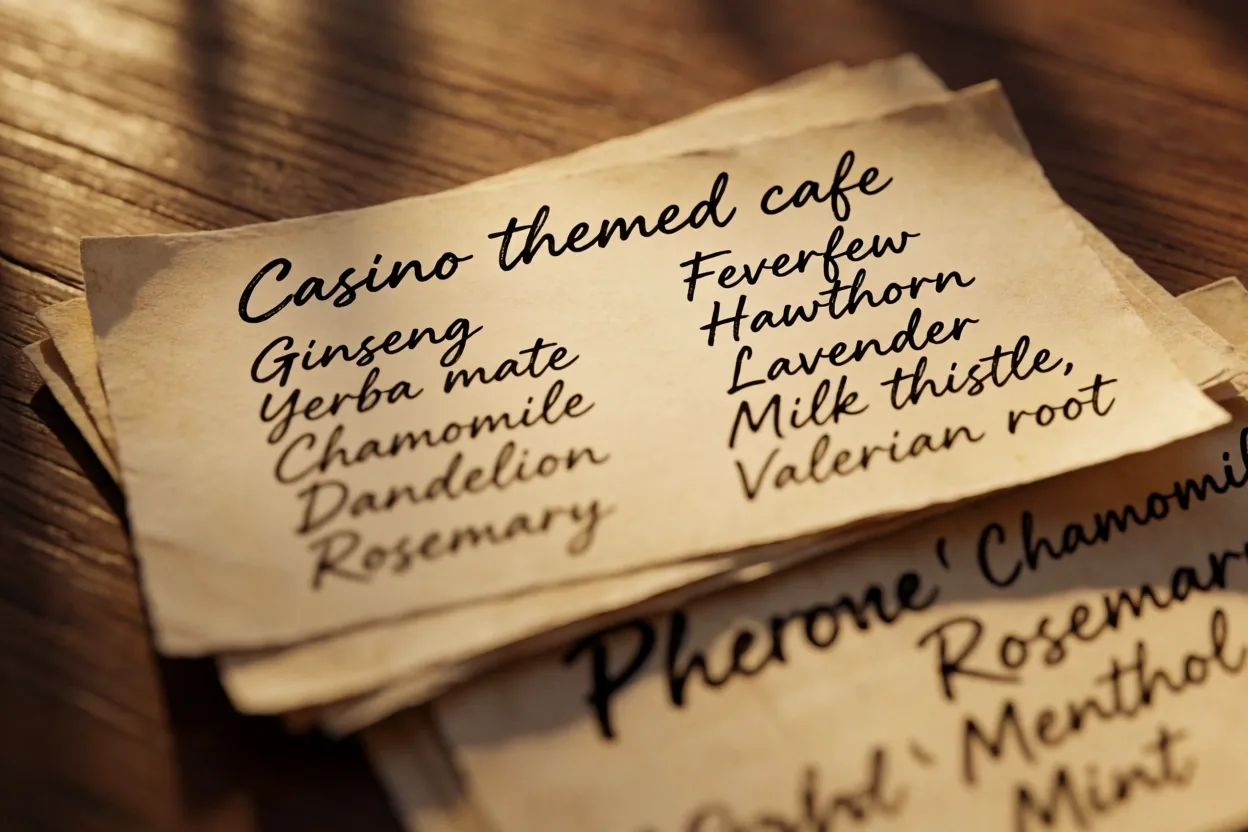 Casino themed cafe
Ginseng
Yerba mate
Chamomile
Dandelion
Rosemary
Feverfew
Hawthorn
Lavender
Milk thistle,
Valerian root
Pherone' Chamomil
Rosemar
Menthol
Mint